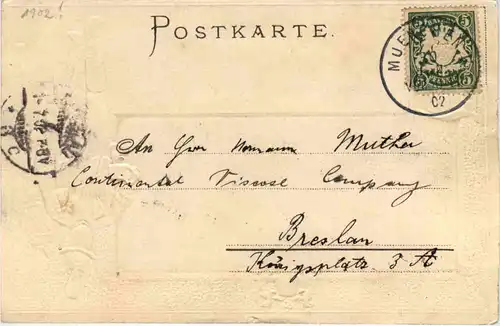 1902!
POSTKARTE.
5 5
MUE
02
An Herr Hermann Muther
Continental Viscose Company
Breslau
Königsplatz 3 A